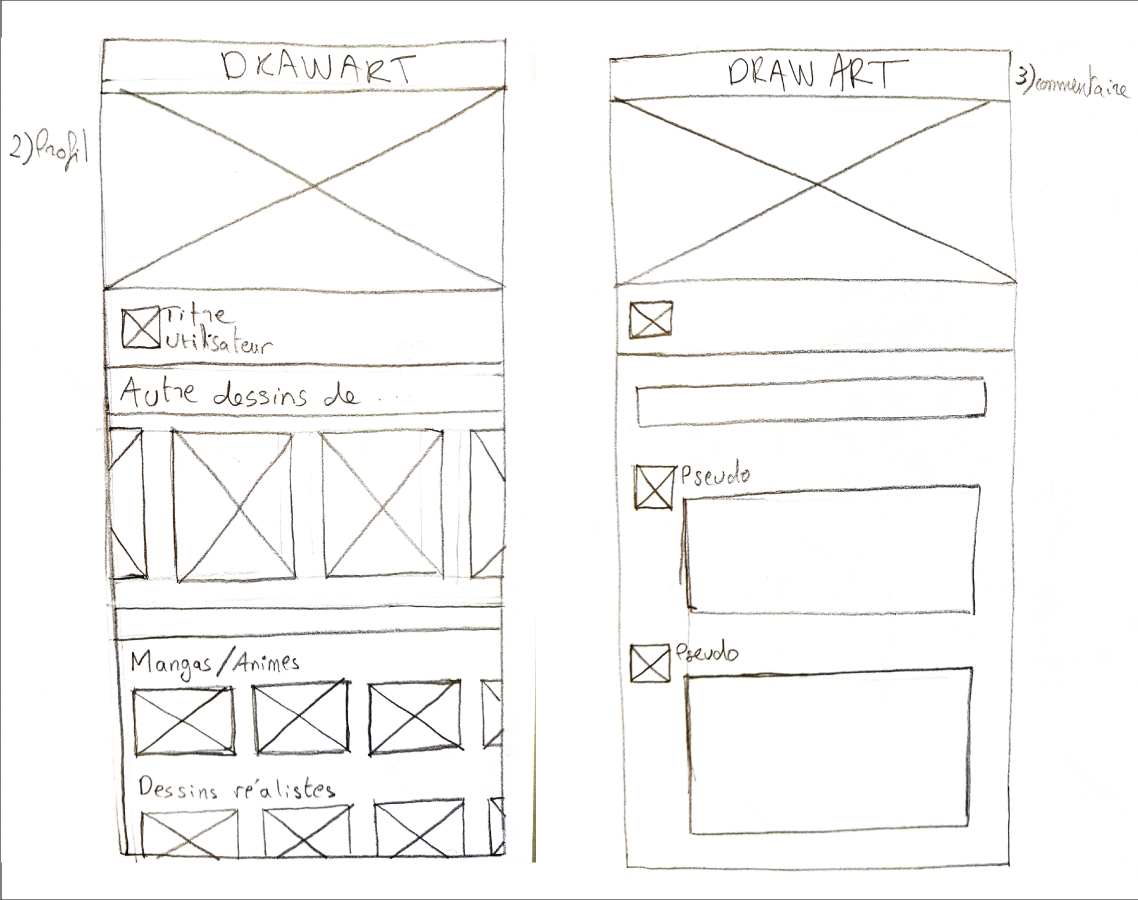 DRAWART
2) Profil
Titre
utilisateur
Autre dessins de ....
Mangas/Animes
Dessins réalistes
DRAW ART
3) commentaire
Pseudo
Pseudo